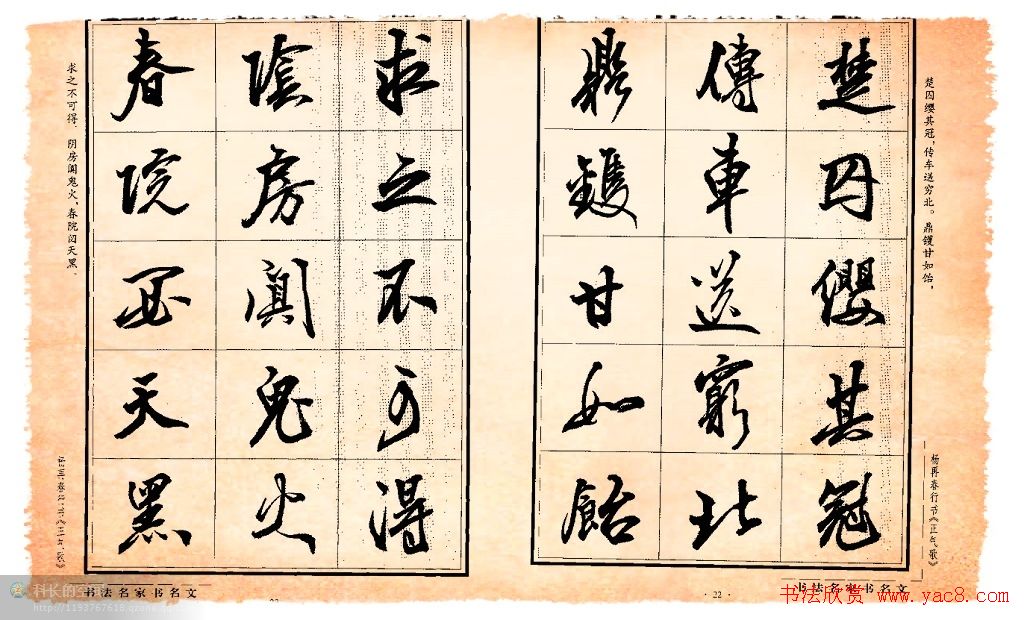 楚囚缨其冠，传车送穷北。鼎镬甘如饴，
楚囚纓其冠
傳車送窮北
鼎鑊甘如飴
杨再春行书《正气歌》
书法名家书名文
· 22 ·
求之不可得
陰房闃鬼火
春院閟天黑
求之不可得。阴房阒鬼火，春院闭天黑。
书法名家书名文
科长的空间
http://1193767618.qzone.qq.com
书法欣赏 www.yac8.com